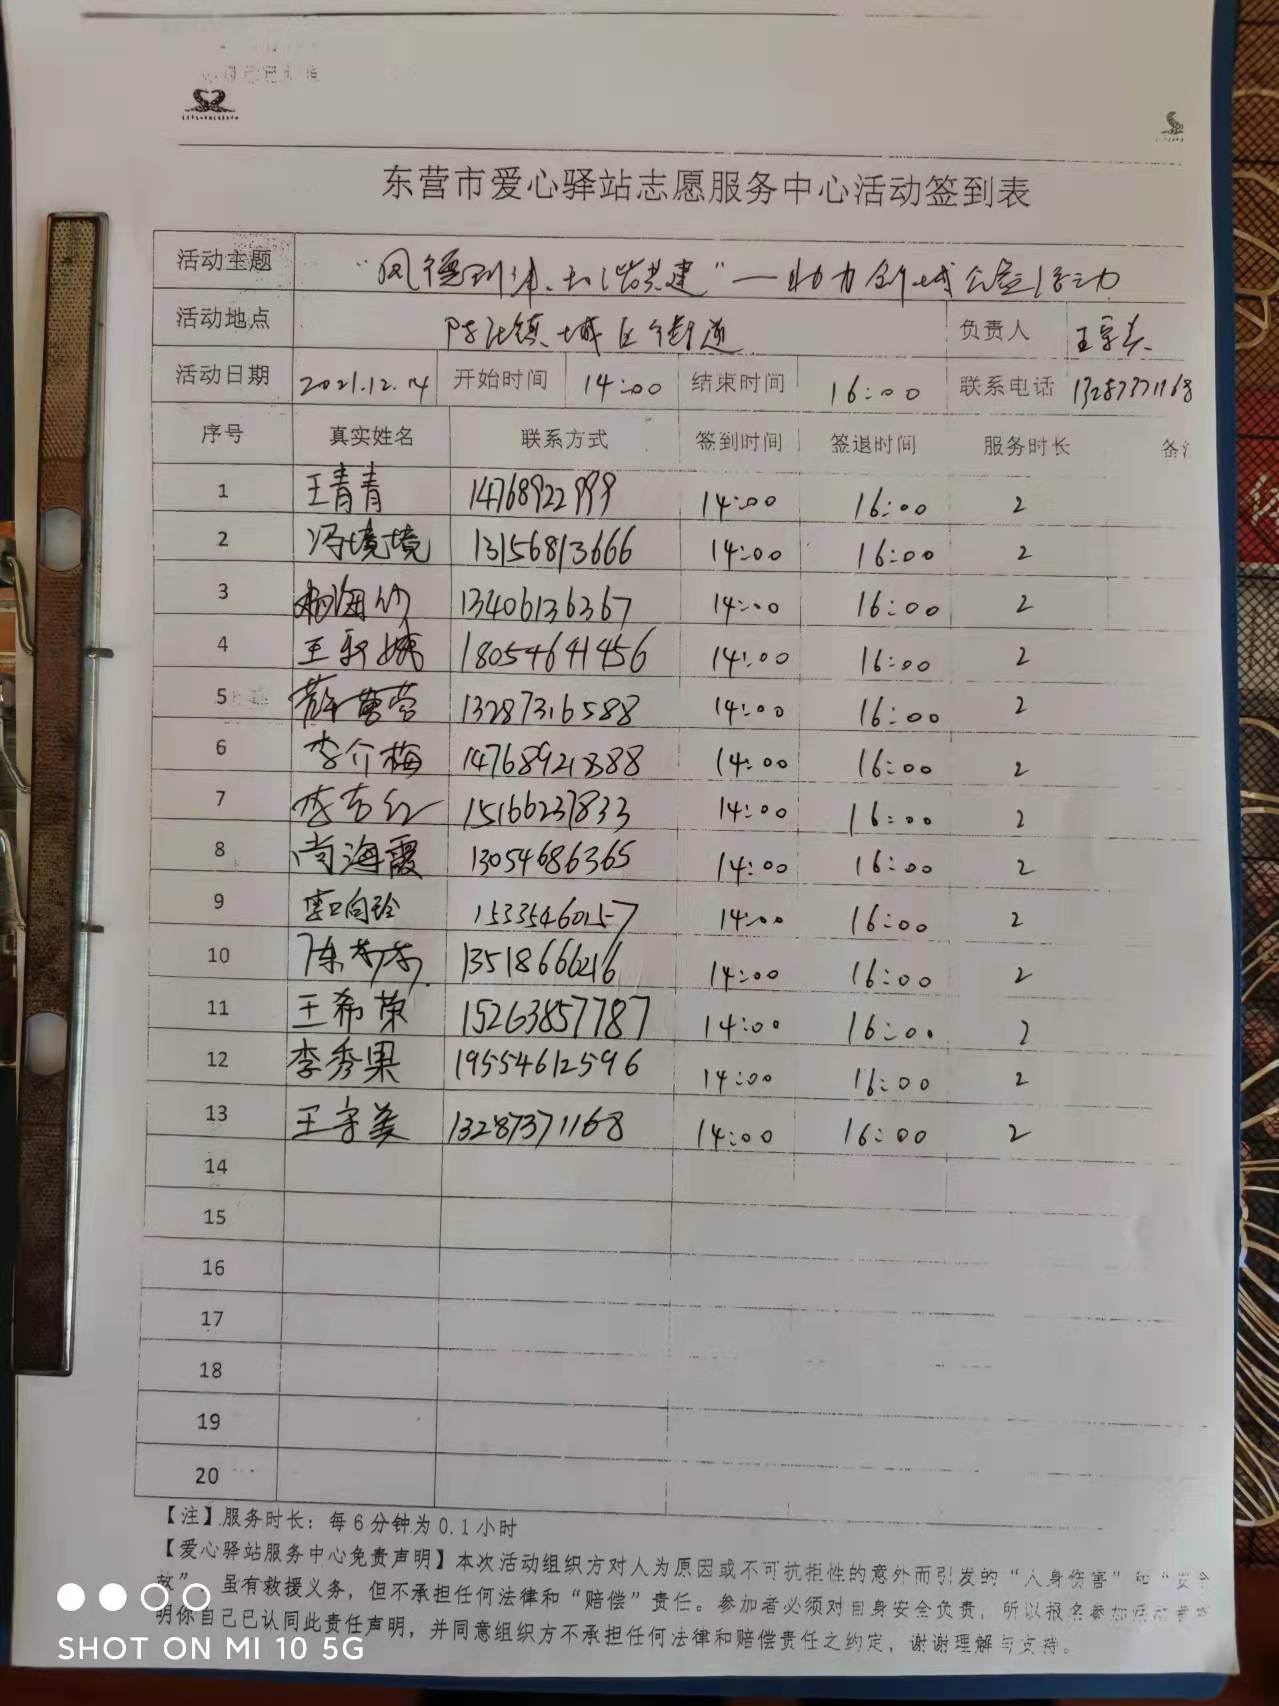 东营市爱心驿站志愿服务中心活动签到表
活动主题 "风德利津、和谐共建"—助力创城公益活动
活动地点 陈庄镇城区街道 负责人
活动日期 2021.12.14 开始时间 14:00 结束时间 16:00 联系电话 13287371168
序号 真实姓名 联系方式 签到时间 签退时间 服务时长
1 王青青 14768922999 14:00 16:00 2
2 冯境境 13156813666 14:00 16:00 2
3 13406136367 14:00 16:00 2
4 18054641456 14:00 16:00 2
5 13287316588 14:00 16:00 2
6 李介梅 14768921888 14:00 16:00 2
7 15166237833 14:00 16:00 2
8 尚海霞 13054686365 14:00 16:00 2
9 15335460157 14:00 16:00 2
10 陈芳芳 13518666216 14:00 16:00 2
11 王希荣 15263857787 14:00 16:00 2
12 李秀果 19554612596 14:00 16:00 2
13 13287371168 14:00 16:00 2
14
15
16
17
18
19
20
【注】服务时长：每6分钟为0.1小时
【爱心驿站服务中心免责声明】本次活动组织方对人为原因或不可抗拒性的意外而引发的"人身伤害"和"安全
故"，虽有救援义务，但不承担任何法律和"赔偿"责任。参加者必须对自身安全负责，所以报名参加活动
明你自己已认同此责任声明，并同意组织方不承担任何法律和赔偿责任之约定，谢谢理解与支持。
SHOT ON MI 10 5G